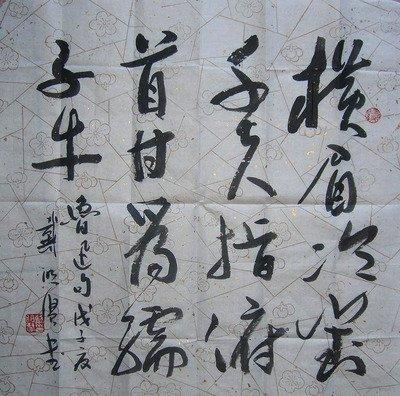 橫眉冷對
千夫指俯
首甘為孺
子牛
魯迅句戊子夏